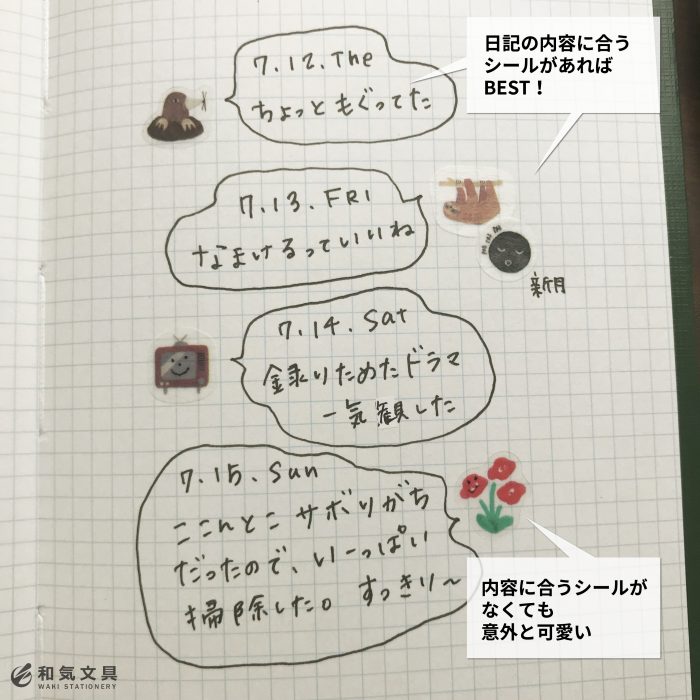 日記の内容に合う
シールがあれば
BEST！
7.12.The
ちょっともぐってた
7.13.FRI
なまけるっていいね
新月
7.14.Sat
録りためたドラマ
一気観した
7.15.Sun
ここんとこ サボりがち
だったので、いーっぱい
掃除した。すっきり〜
内容に合うシールが
なくても
意外と可愛い
和気文具
WAKI STATIONERY